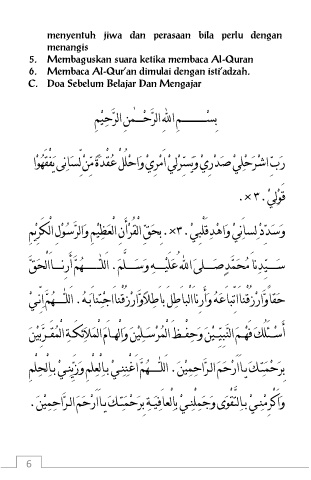 menyentuh jiwa dan perasaan bila perlu dengan
menangis
5. Membaguskan suara ketika membaca Al-Quran
6. Membaca Al-Qur'an dimulai dengan isti'adzah.
C. Doa Sebelum Belajar Dan Mengajar
بِسْــــــمِ اللهِ الرَّحْــمٰنِ الرَّحِيْمِ
رَبِّ اشْرَحْ لِيْ صَدْرِيْ وَيَسِّرْلِيْ اَمْرِيْ وَاحْلُلْ عُقْدَةً مِّنْ لِّسَانِى يَفْقَهُوْا
قَوْلِيْ . ٣× .
وَسَدِّدْ لِسَانِيْ وَاهْدِ قَلْبِيْ . ٣× . بِحَقِّ الْقُرْأٰنِ الْعَظِيْمِ وَالرَّسُوْلِ الْكَرِيْمِ
سَـيِّدِنَا مُحَمَّدٍ صَـلَى اللهُ عَلَيْـهِ وَسَـلَّمَ . اَللّٰـهُمَّ أَرِنَـا اَلْحَقَّ
حَقًّا وَارْزُقْنَا اتِّبَاعَهُ وَأَرِنَا اَلْبَاطِلَ بَاطِلًا وَارْزُقْنَا اجْتِنَابَهُ . اَللّٰـهُمَّ اِنِّيْ
أَسْـئَلُكَ فَهْمَ النَّبِيِّـيْنَ وَحِفْـظَ الْمُرْسَـلِيْنَ وَاِلْهَـامَ الْمَلَائِكَـةِ الْمُقَـرَّبِيْنَ
بِرَحْمَتِـكَ يَـا اَرْحَمَ الرَّاحِمِيْنَ . اَللّٰـهُمَّ اَغْنِنِـيْ بِالْعِلْمِ وَزَيِّنِـيْ بِالْحِلْمِ
وَاَكْرِمْنِـيْ بِالتَّقْوٰى وَجَمِّلْنِـيْ بِالْعَافِيَـةِ بِرَحْمَتِـكَ يَـا اَرْحَمَ الرَّاحِمِيْنَ .
6